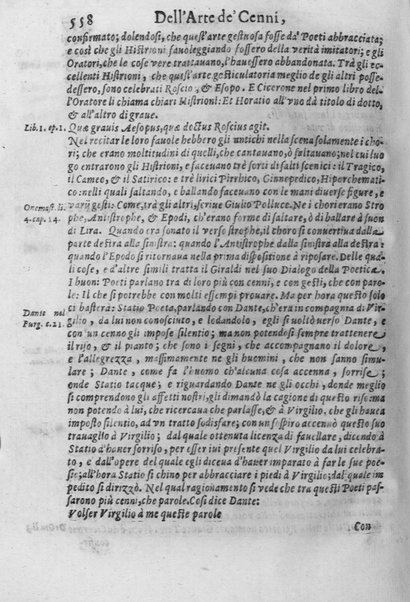 558 Dell'Arte de' Cenni,
confirmato; dolendosi, che quest'arte gestuosa fosse da' Poeti abbracciata;
e così che gli Histrioni fauoleggiando fossero della verità imitatori; e gli
Oratori, che le cose vere trattauano, l'hauessero abbandonata. Trà gli ec-
cellenti Histrioni, che quest'arte gesticulatoria meglio de gli altri posse-
dessero, sono celebrati Roscio, & Esopo. E Cicerone nel primo libro del-
l'Oratore li chiama chiari Histrioni: Et Horatio all'vno dà titolo di dotto,
& all'altro di graue.
Lib. 1. ep. 1. Quæ grauis Aesopus, quæ doctus Roscius agit.
Nel recitar le loro fauole hebbero gli antichi nella scena solamente i cho-
ri; che erano moltitudini di quelli, che cantauano, ò saltauano; nel cui luo
go entrarono gli Histrioni, e faceuano trè sorti di salti scenici: il Tragico,
il Cameo, & il Satiro: e trè lirici Pirrhico, Ginnepedico, Hiperchemati-
co: nelli quali saltando, e ballando faceuano con le mani diuerse figure, e
Onomast. li. varij gesti: Come, trà gli altri, scriue Giulio Polluce. Ne i chori erano Stro
4. cap. 14. phe, Antistrophe, & Epodi, ch'erano forme di saltare, ò di ballare à suon
di Lira. Quando era sonato il verso strophe, il choro si conuertiua dalla
parte destra alla sinistra: quando l'Antistrophe dalla sinistra alla destra: e
quando l'Epodo si ritornaua nella prima dispositione à riposare. Delle qua
li cose, e d'altre simili tratta il Giraldi nel suo Dialogo della Poetica.
I buoni Poeti parlano tra di loro più con cenni, e con gesti, che con paro-
le: Il che si potrebbe con molti essempi prouare. Ma per hora questo solo
Dante nel ci basterà: Statio Poeta, parlando con Dante, ch'era in compagnia di Vir-
Purg. c. 21. gilio, da lui non conosciuto, e lodandolo, egli si voltò verso Dante, e
con vn cenno gli impose silentio; ma non potendosi sempre trattenere
il riso, & il pianto; che sono i segni, che accompagnano il dolore,
e l'allegrezza, massimamente ne gli huomini, che non sanno simu-
lare; Dante, come fa l'huomo ch'alcuna cosa accenna, sorrise;
onde Statio tacque; e riguardando Dante ne gli occhi, donde meglio
si comprendono gli affetti nostri, gli dimandò la cagione di questo riso: ma
non potendo à lui, che ricercaua che parlasse, & à Virgilio, che gli haueua
imposto silentio, ad vn tratto sodisfare; con vn sospiro accennò questo suo
trauaglio à Virgilio; dal quale ottenuta licenza di fauellare, dicendo à
Statio d'hauer sorriso, per esser iui presente quel Virgilio da lui celebra-
to, e dall'opere del quale egli diceua d'hauer imparato à far le sue poe-
sie; all'hora Statio si chinò per abbracciare i piedi à Virgilio; dal quale im
pedito si dirizzò. Nel qual ragionamento si vede che tra questi Poeti pas-
sarono più cenni, che parole. Così dice Dante:
Volser Virgilio à me queste parole
Con